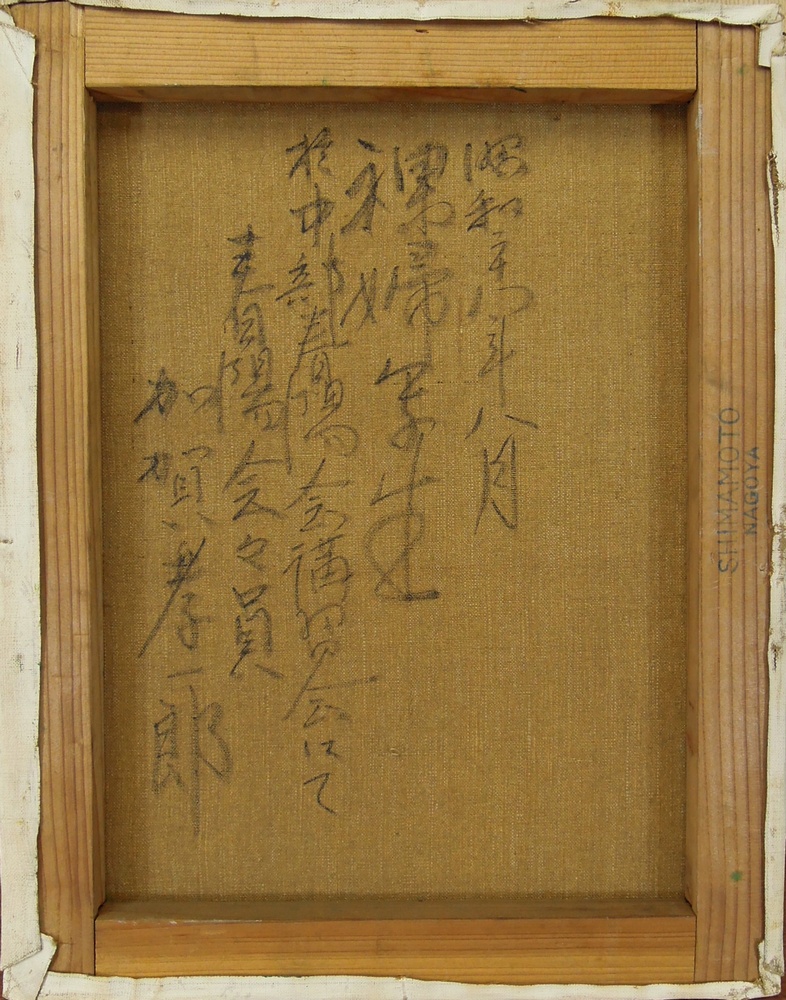 昭和年八月
裸婦写生
於中部春陽会講習会にて
春陽会々員
加賀孝一郎
SHIMAMOTO
NAGOYA